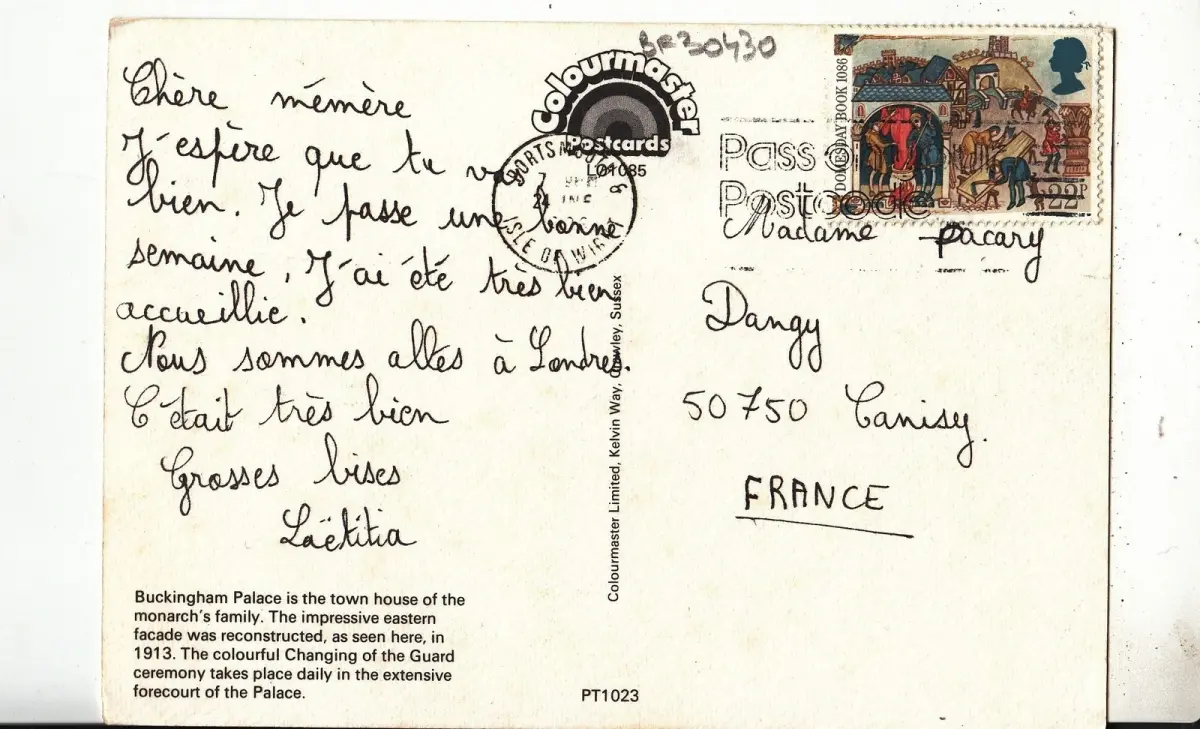 Chère mémère
J'espère que tu vas
bien. Je passe une bonne
semaine. J'ai été très bien
accueillie.
Nous sommes allés à Londres.
C'était très bien
Grosses bises
Laëtitia
Buckingham Palace is the town house of the
monarch's family. The impressive eastern
facade was reconstructed, as seen here, in
1913. The colourful Changing of the Guard
ceremony takes place daily in the extensive
forecourt of the Palace.
BR30430
Colourmaster
Postcards
LO1085
PORTSMOUTH &
ISLE OF WIGHT
24
Colourmaster Limited, Kelvin Way, Crawley, Sussex
PT1023
DOMESDAY BOOK 1086
22P
Pass
Postcode
Madame Pacary
Dangy
50750 Canisy.
FRANCE